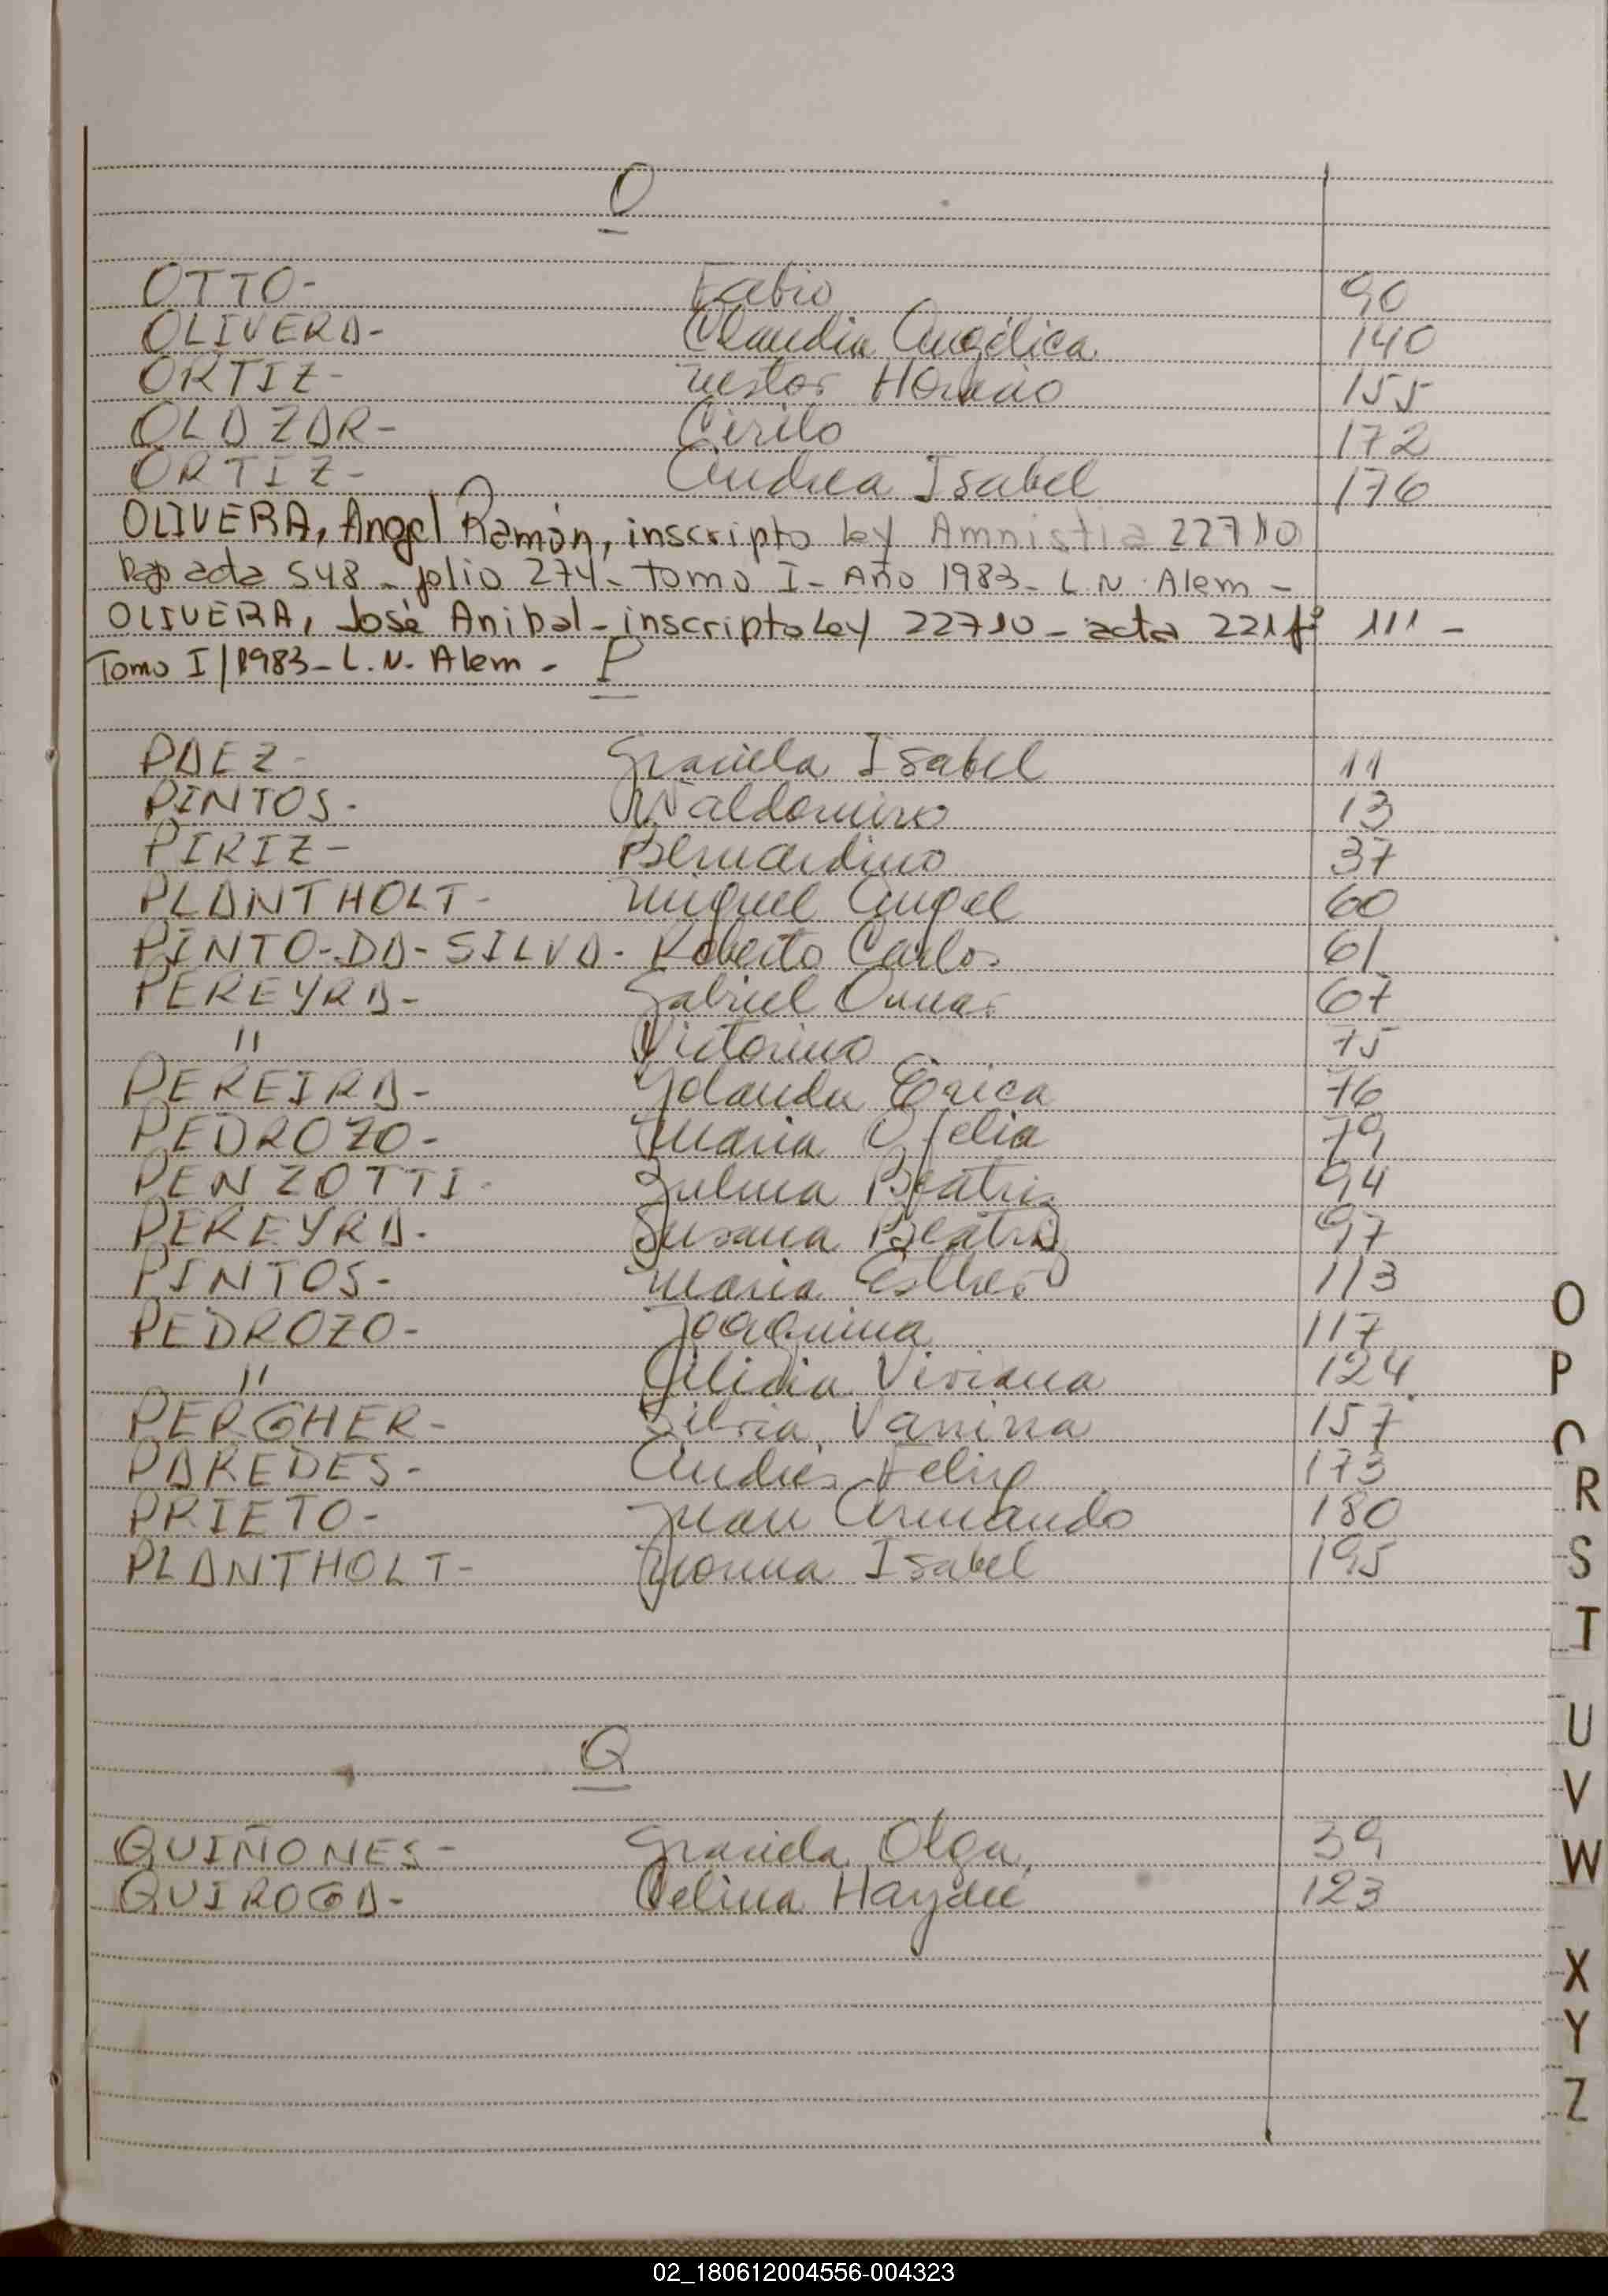 O
OTTO- Fabio 90
OLIVERA- Claudia Angélica 140
ORTIZ- Nestor Horacio 155
OLAZAR- Cirilo 172
ORTIZ- Andrea Isabel 176
OLIVERA, Angel Ramón, inscripto ley Amnistia 22710
Bajo acta 548 - folio 274 - Tomo I - Año 1983 - L.N. Alem -
OLIVERA, José Anibal - inscripto Ley 22710 - acta 221 fº 111 -
Tomo I/1983 - L.N. Alem -
P
PAEZ- Graciela Isabel 11
PINTOS- Waldomiro 13
PIRIZ- Bernardino 37
PLANTHOLT- Miguel Angel 60
PINTO-DA-SILVA- Roberto Carlos 61
PEREYRA- Gabriel Omar 67
" Victorino 75
PEREIRA- Yolanda Erica 76
PEDROZO- Maria Ofelia 79
PENZOTTI- Zulma Beatriz 94
PEREYRA- Susana Beatriz 97
PINTOS- Maria Esther 113
PEDROZO- Joaquina 117
" Viviana 124
PERGHER- Silvia Vanina 157
PAREDES- Andrés Felipe 173
PRIETO- Juan Armando 180
PLANTHOLT- Isabel 195
Q
QUIÑONES- Graciela Olga 39
QUIROGA- Celina Haydee 123
O
P
Q
R
S
T
U
V
W
X
Y
Z
02_180612004556-004323